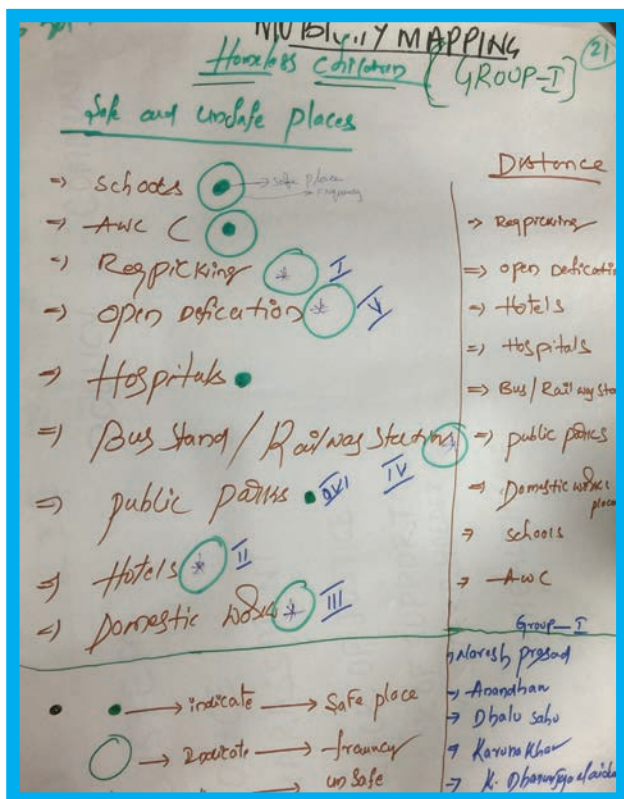 MAPPING
Homeless children (GROUP-I)
21
Safe and unsafe places
=> Schools → safe place
→ frequency
=> AWC C
=> Regpicking I
=> open Defication V
=> Hospitals
=> Bus Stand / Railway Station IV
=> public parks VI
=> Hotels II
=> Domestic work III
→ indicate → Safe place
→ Indicate →
→ un safe
Distance
→ Regpicking
=> open Defication
→ Hotels
=> Hospitals
=> Bus / Railway Sta
=> public parks
=> Domestic works place
→ schools
→ AWC
Group-I
Naresh prasad
→ Anandhan
→ Dhalu sahu
→ Karuna Khar
→ K.